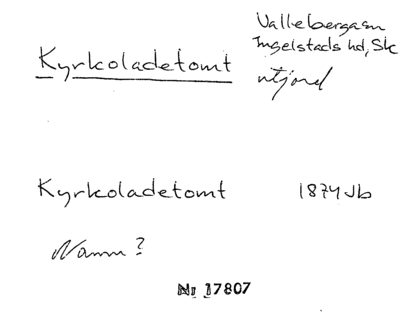 Kyrkoladetomt
Vallebergasn
Ingelstads hd, Sk
utjord
Kyrkoladetomt 1874 Jb
Namn?
Nr 17807